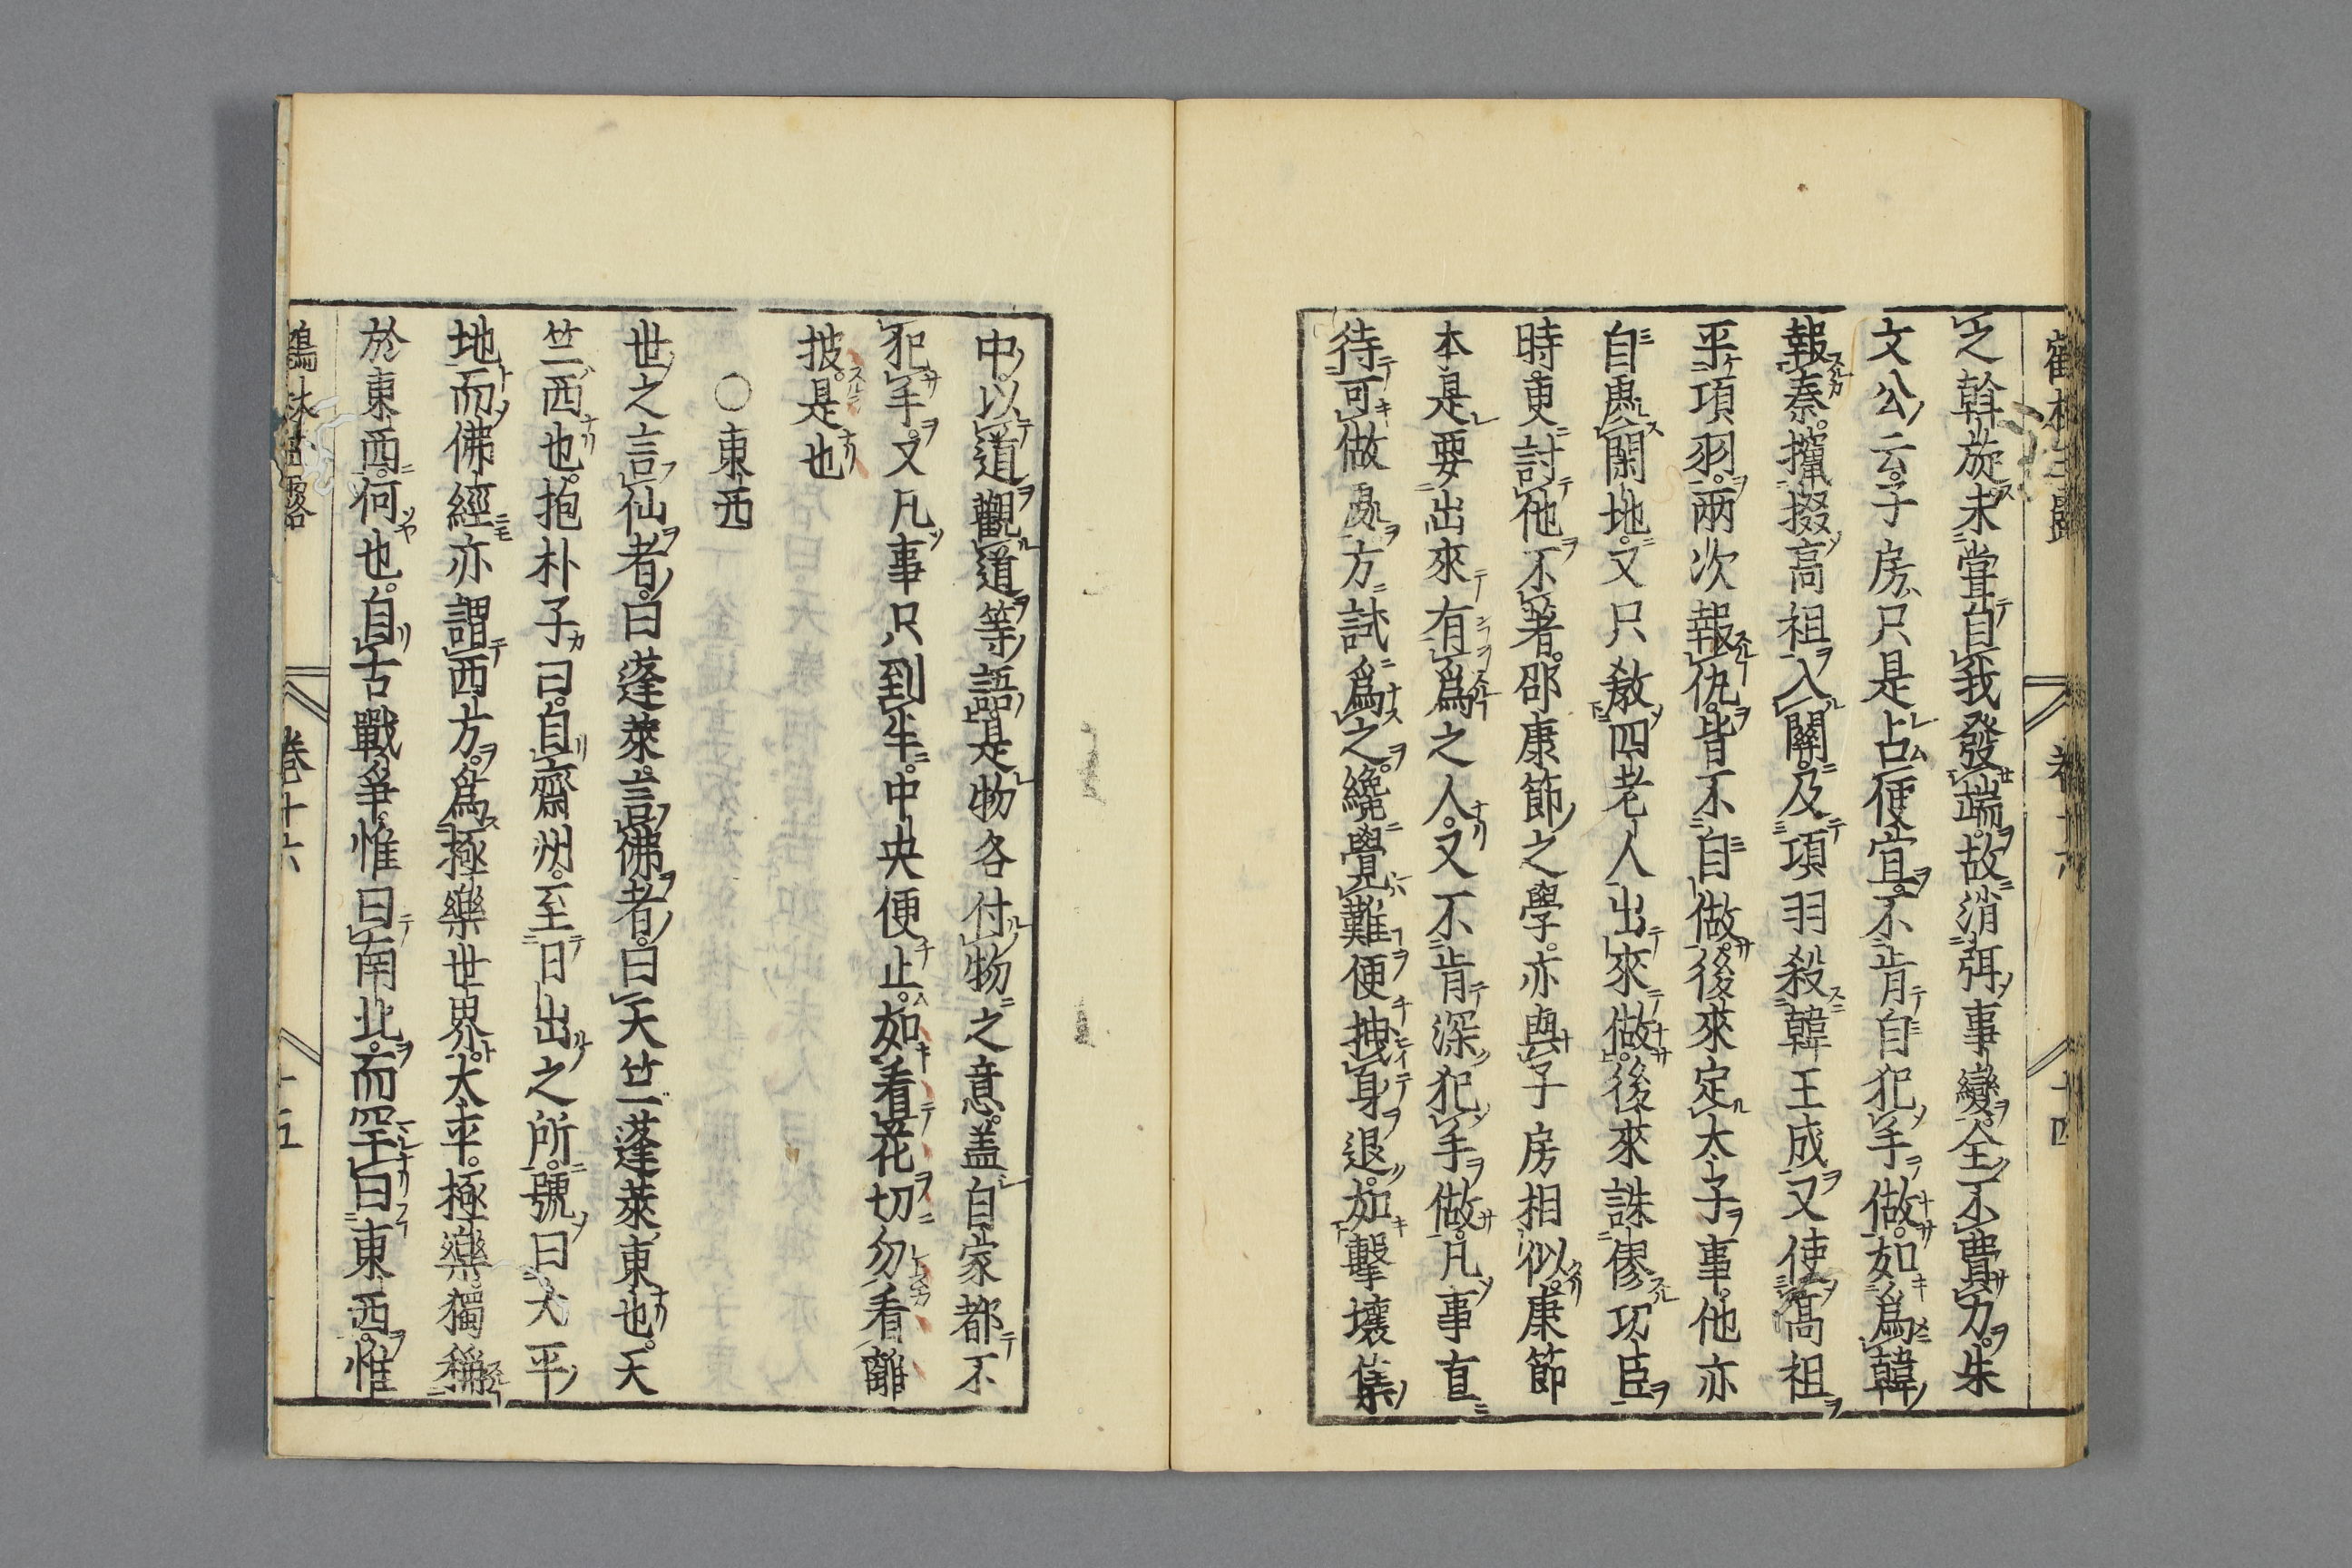 之斡旋未嘗自我發端故消弭事變全不費力朱
文公云子房只是占便宜不肯自犯手做如爲韓
報秦攛掇高祖入關及項羽殺韓王成又使高祖
平項羽兩次報仇皆不自做後來定太子事他亦
自處閑地又只敎四老人出來做後來誅僇功臣
時更討他不著邵康節之學亦與子房相似康節
本是要出來有爲之人又不肯深犯手做凡事直
待可做處方試爲之纔覺難便拽身退如擊壤集
中以道觀道等語是物各付物之意盖自家都不
犯手又凡事只到半中央便止如看花切勿看離
披是也
○東西
世之言仙者曰蓬萊言佛者曰天竺蓬萊東也天
竺西也抱朴子曰自齊州至日出之所號曰大平
地而佛經亦謂西方爲極樂世界太平極樂獨稱
於東西何也自古戰爭惟曰南北而罕曰東西惟
卷十六